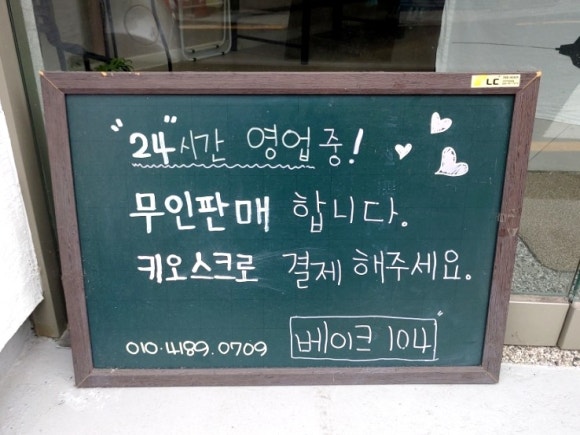 LC
"24"시간 영업중!
무인판매 합니다.
키오스크로 결제 해주세요.
010.4189.0709
베이크 104"